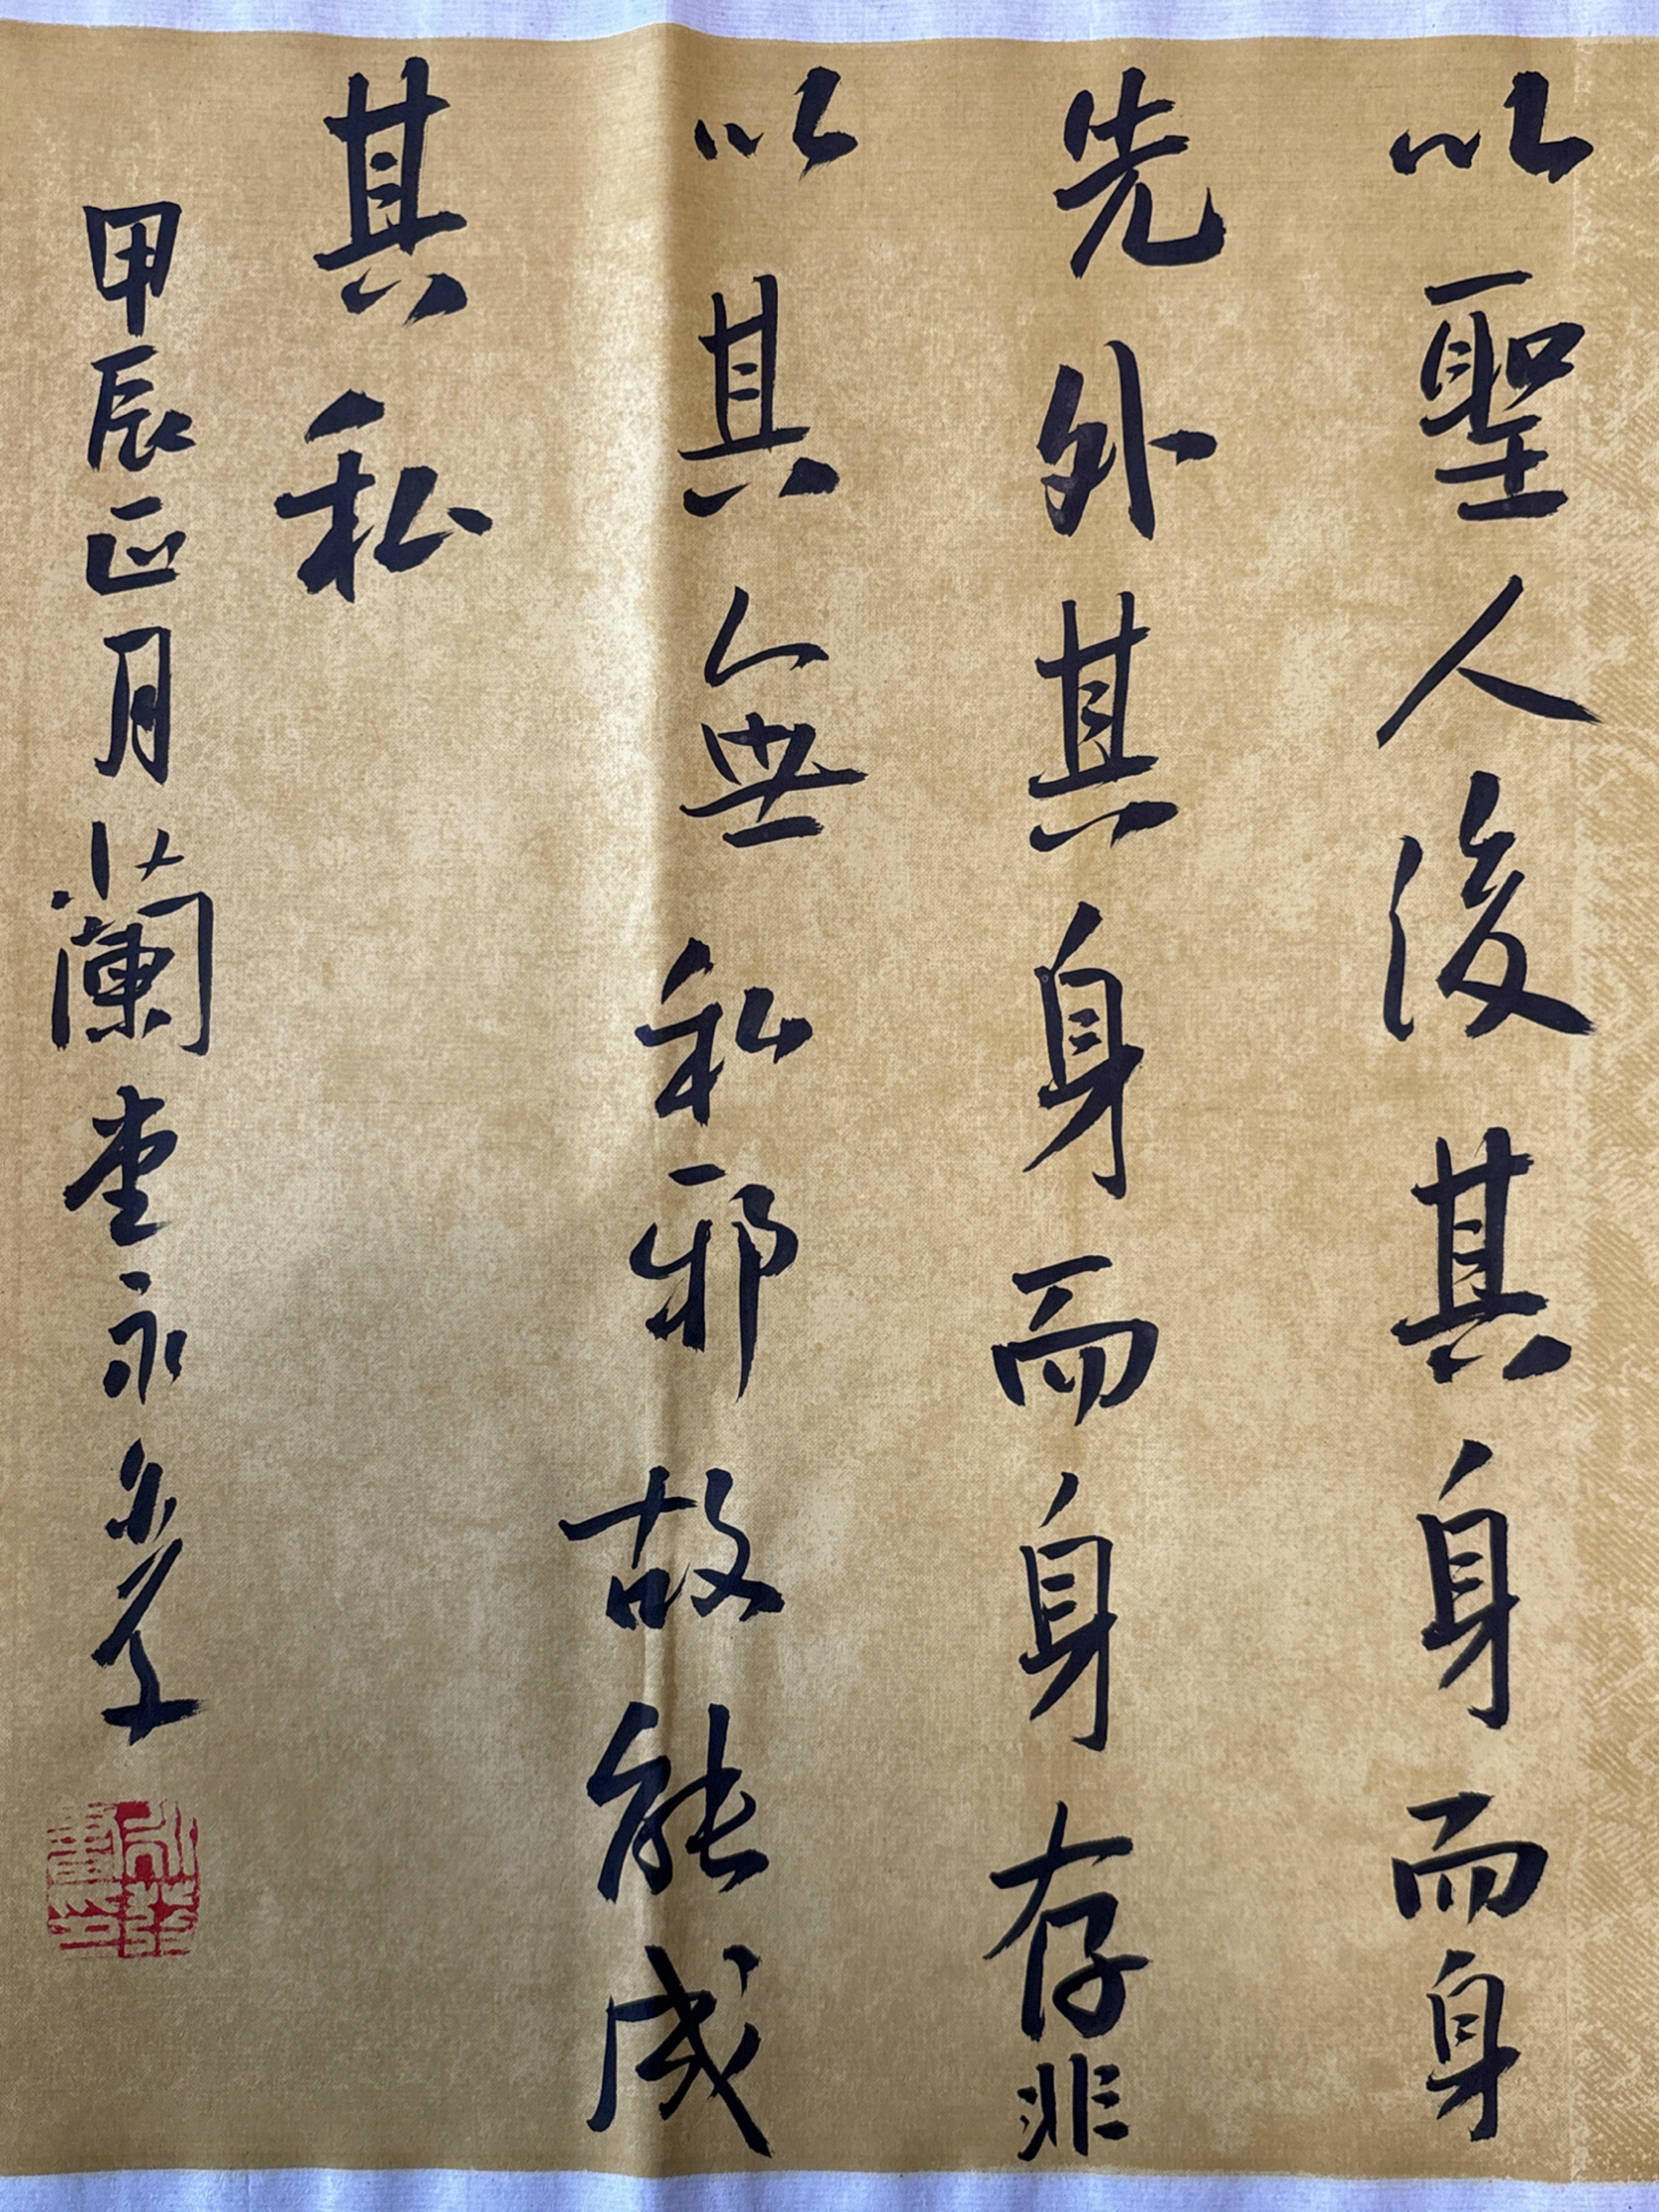 以聖人後其身而身
先外其身而身存非
以其無私邪故能成
其私
甲辰正月蘭堂永